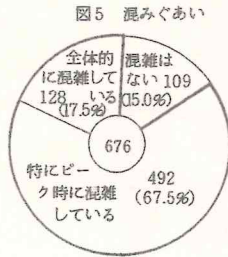 図5 混みぐあい
全体的
に混雑して
128 いる
(17.5%)
混雑は
ない 109
(15.0%)
676
特にピー
ク時に混雑
している
492
(67.5%)